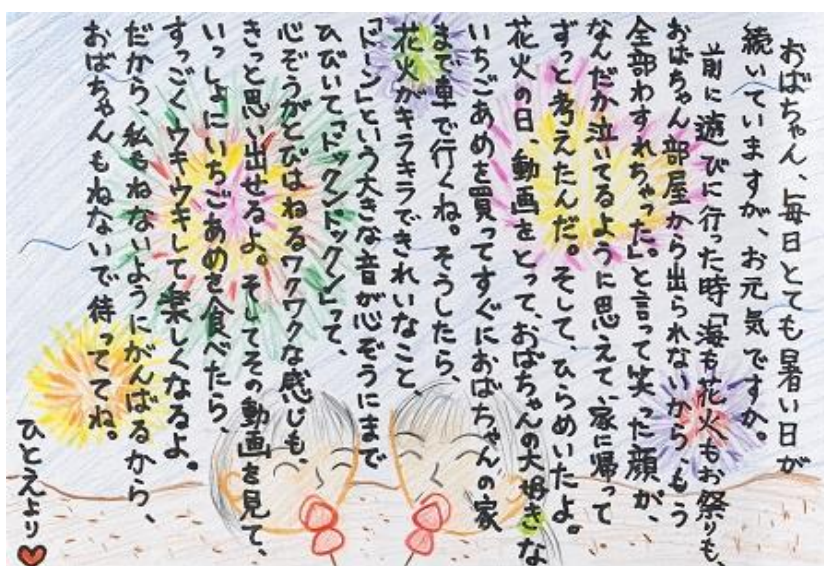 おばちゃん、毎日とても暑い日が
続いていますが、お元気ですか。
前に遊びに行った時「海も花火もお祭りも、
おばちゃん部屋から出られないから、もう
全部わすれちゃった。」と言って笑った顔が、
なんだか泣いてるように思えて、家に帰って
ずっと考えたんだ。そして、ひらめいたよ。
花火の日、動画をとって、おばちゃんの大好きな
いちごあめを買ってすぐにおばちゃんの家
まで車で行くね。そうしたら、
花火がキラキラできれいなこと、
「ドーン」という大きな音が心ぞうにまで
ひびいて「ドックンドックン」って、
心ぞうがとびはねるワクワクな感じも、
きっと思い出せるよ。そしてその動画を見て、
いっしょにいちごあめを食べたら、
すっごくウキウキして楽しくなるよ。
だから、私もねないようにがんばるから、
おばちゃんもねないで待っててね。
ひとえより